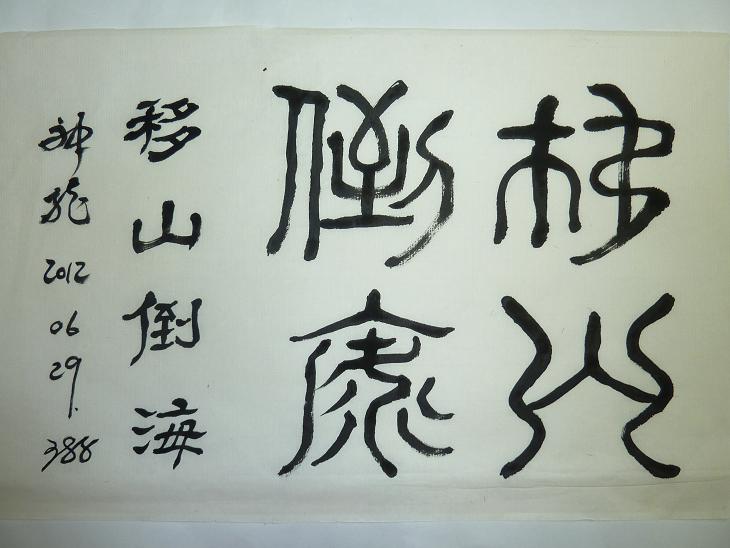 移山
倒海
移山倒海
神龙 2012 06 29. 388